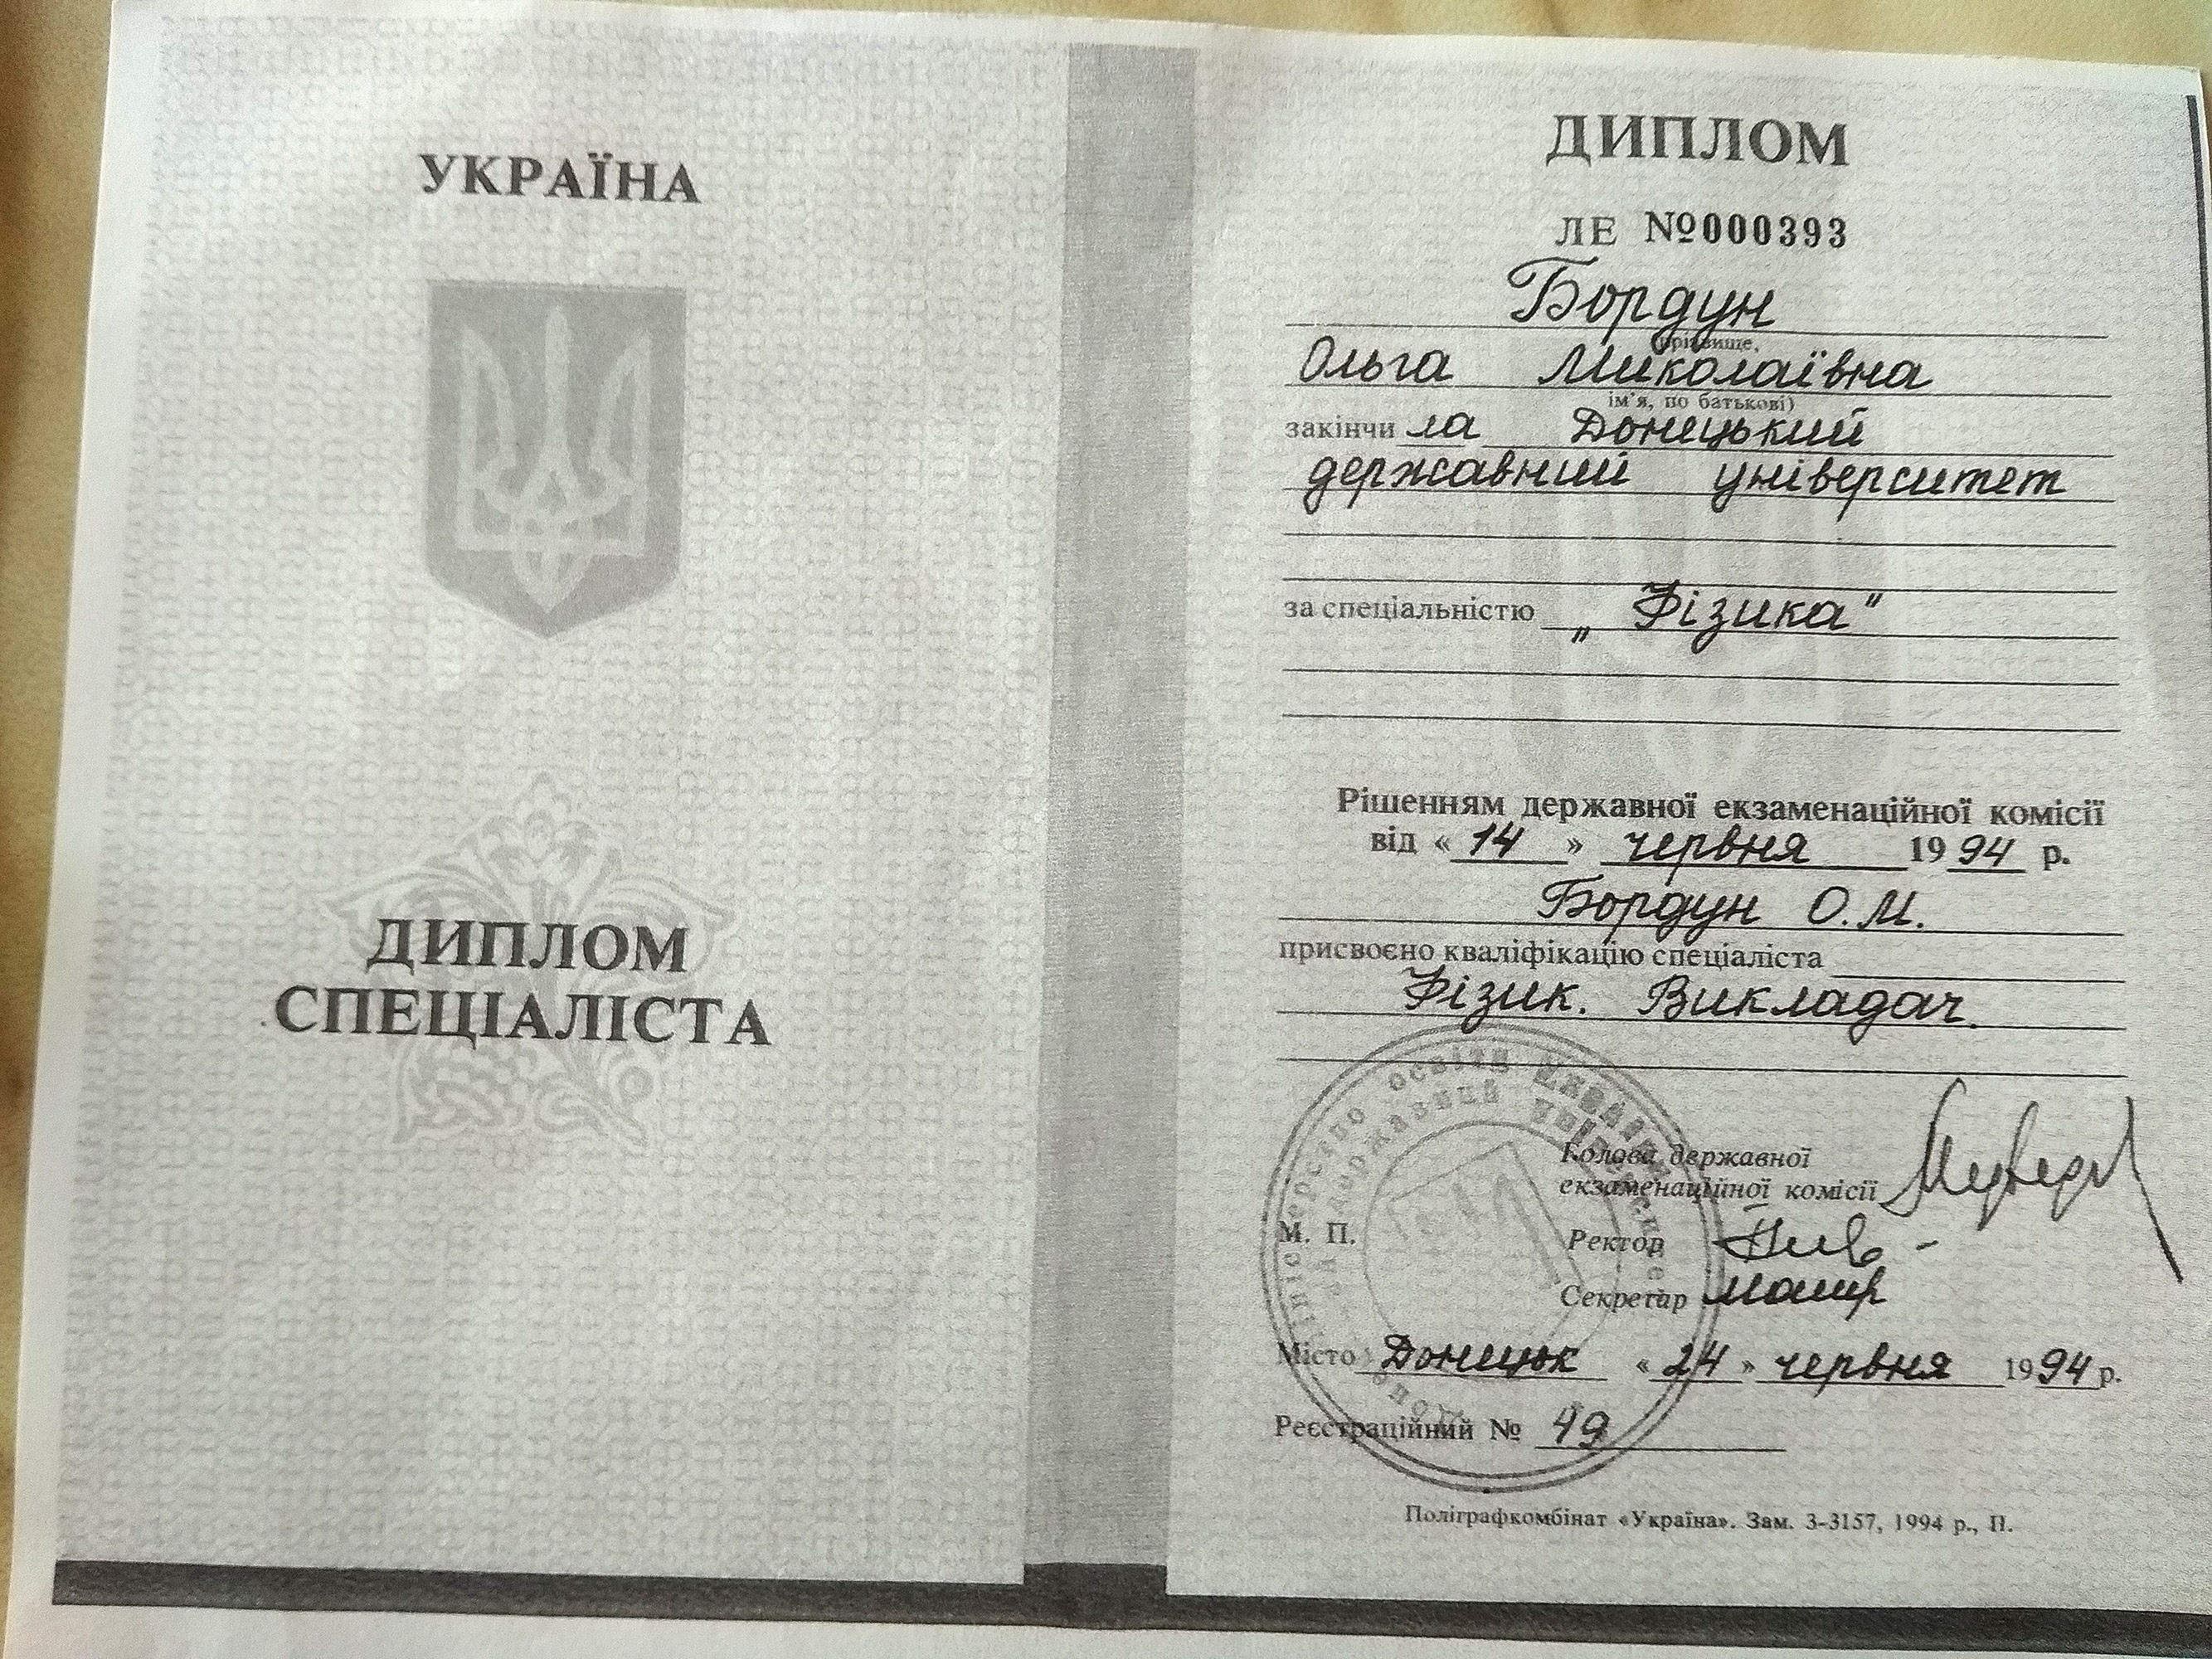 УКРАЇНА
ДИПЛОМ
СПЕЦІАЛІСТА
ДИПЛОМ
ЛЕ №000393
Бордун
(прізвище,
Ольга Миколаївна
ім'я, по батькові)
закінчила Донецький
державний університет
за спеціальністю „Фізика"
Рішенням державної екзаменаційної комісії
від « 14 » червня 1994 р.
Бордун О.М.
присвоєно кваліфікацію спеціаліста
Фізик. Викладач.
Голова державної
екзаменаційної комісії
М. П.
Ректор
Секретар
Місто Донецьк « 24 » червня 1994 р.
Реєстраційний № 49
Поліграфкомбінат «Україна». Зам. 3-3157, 1994 р., П.